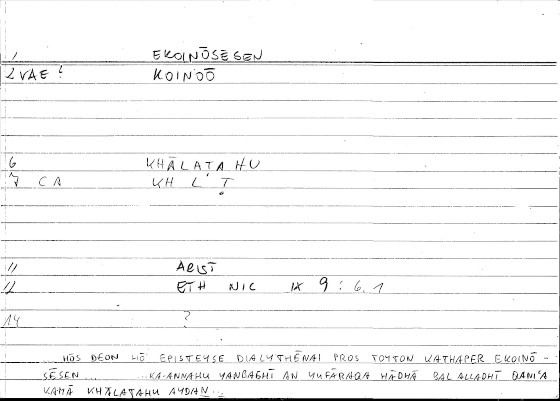 1 EKOINŌSĒSEN
2 VAE ? KOINOŌ
6 KHĀLAṬAHU
7 CA KH L Ṭ
11 ARIST
12 ETH NIC IX 9 : 6.1
14 ?
... HŌS DEON HŌ EPISTEYSE DIALYTHĒNAI PROS TOYTON KATHAPER EKOINŌ-
SĒSEN ... ... KA-ANNAHU YANBAGHĪ AN YUFĀRAQA HĀDHĀ BAL ALLADHĪ QANI'A
KAMĀ KHĀLAṬAHU AYḌAN ...